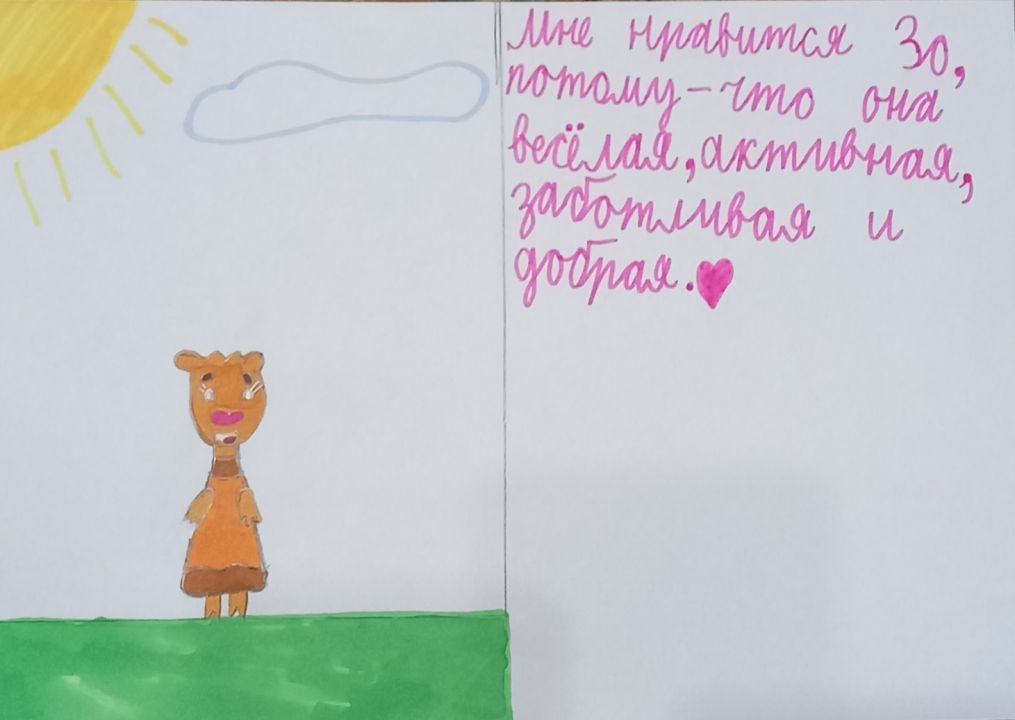 Мне нравится Зо,
потому-что она
весёлая, активная,
заботливая и
добрая.